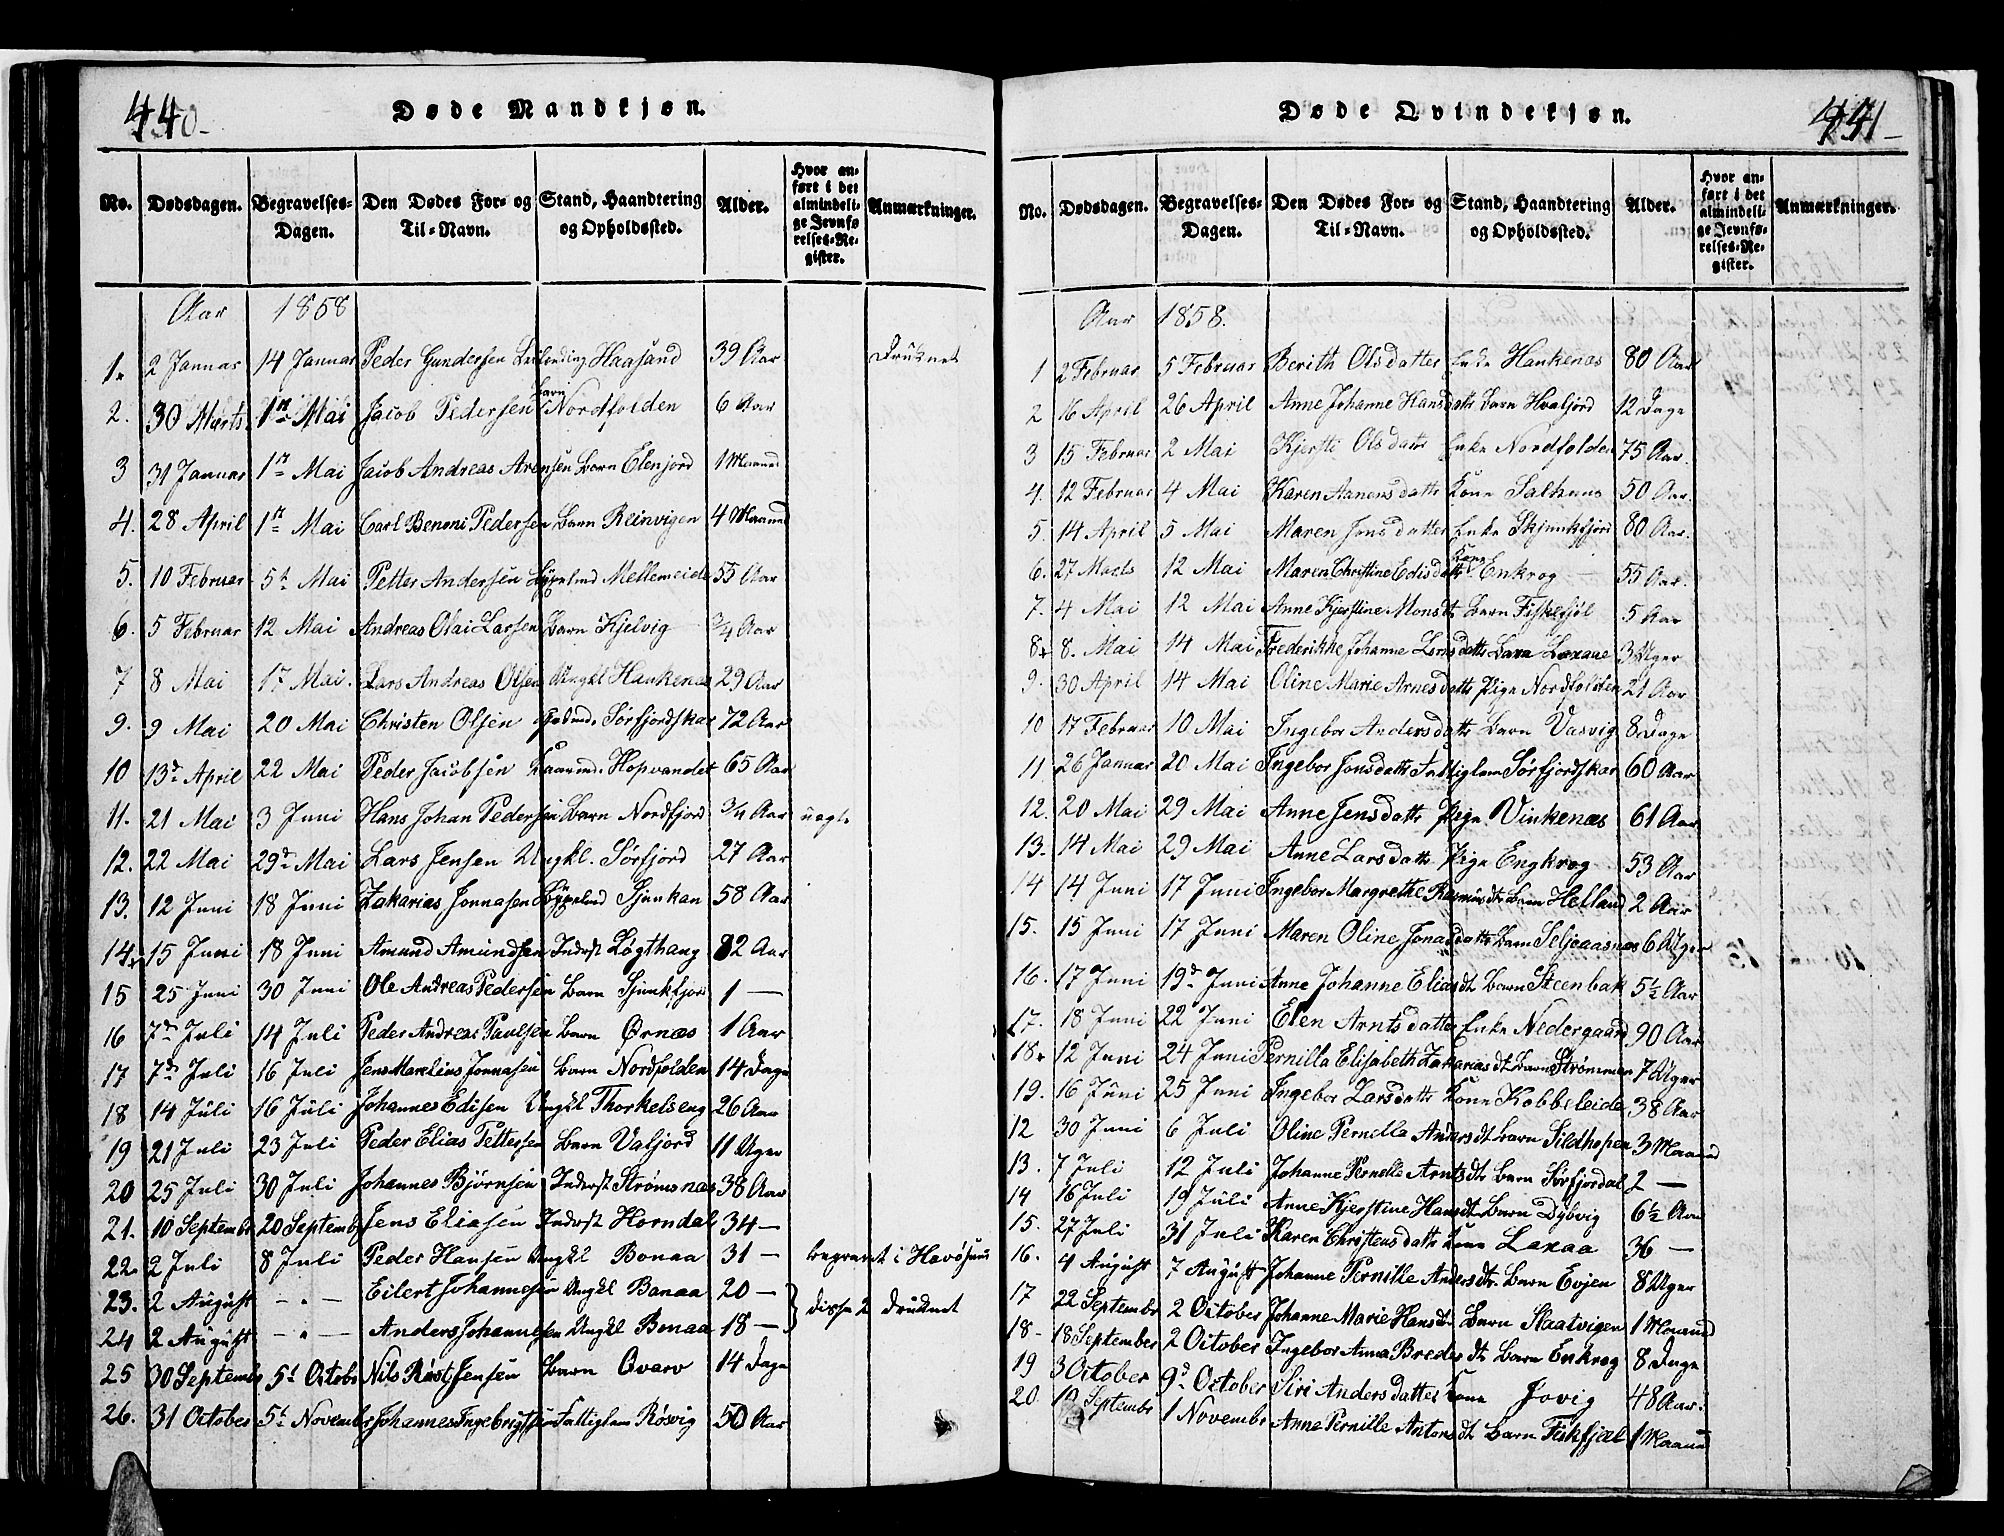 440.
Døde Mandkjøn.
No. Dødsdagen. Begravelses-Dagen. Den Dødes For- og Til-Navn. Stand, Haandtering og Opholdssted. Alder. Hvor anført i det almindelige Jevnførelses-Register. Anmærkninger.
Aar 1858
1. 2 Januar 14 Januar Peder Gundersen Leilending Haasand 39 Aar Druknet
2. 30 Marts 1ste Mai Jacob Pedersen Barn Nordfolden 6 Aar
3 31 Januar 1ste Mai Jacob Andreas Arensen Barn Elenjord 1 Maaned
4. 28 April 1ste Mai Carl Benoni Pedersen Barn Reinvigen 4 Maaned
5. 10 Februar 5t Mai Petter Andersen Mellemeide 55 Aar
6. 5 Februar 12 Mai Andreas Olai Larsen Barn Kjelvig 3/4 Aar
7 8 Mai 17 Mai. Lars Andreas Olsen Ungkl Hankenæs 29 Aar
9. 9 Mai 20 Mai Christen Olsen Sørfjordskar 72 Aar
10 13de April 22 Mai Peder Jacobsen Kaarmd. Hopvandet 65 Aar
11. 21 Mai 3 Juni Hans Johan Pedersen Barn Nordfjord 3/4 Aar uægte
12. 22 Mai 29de Mai Lars Jensen Ungkl. Sørfjord 27 Aar
13. 12 Juni 18 Juni Zakarias Jonnasen Sjunkan 58 Aar
14. 15 Juni 18 Juni Amund Amundsen Inderst Løgthaug 82 Aar
15 25 Juni 30 Juni Ole Andreas Pedersen Barn Sjunkfjord 1 —
16 7de Juli 14 Juli Peder Andreas Paulsen Barn Ørnæs 1 Aar
17 7de Juli 16 Juli Jens Marelius Jonnasen Barn Nordfolden 14 Dage
18 14 Juli 16 Juli Johannes Edisen Ungkl Thorkelseng 26 Aar
19 21 Juli 23 Juli Peder Elias Pettersen Barn Valjord 11 Uger
20 25 Juli 30 Juli Johannes Bjørnsen Inderst Strømsnæs 38 Aar
21. 10 Septembr 20 Septembr Jens Eliasen Inderst Horndal 34 —
22. 2 Juli 8 Juli Peder Hansen Ungkl Bonaa 31 — begravet i Havøsund
23. 2 August — " — Eilert Johannesen Ungkl Bonaa 20 — } disse 2 druknet
24 2 August — " — Anders Johannesen Ungkl Bonaa 18 —
25 30 Septembr 5t Octobr Nils Røst Jensen Barn Ovarv 14 Dage
26. 31 October 5t Novembr Johannes Ingebrigtsen Fattiglem Røsvig 50 Aar
441
Døde Qvindekjøn.
No. Dødsdagen. Begravelses-Dagen. Den Dødes For- og Til-Navn. Stand, Haandtering og Opholdssted. Alder. Hvor anført i det almindelige Jevnførelses-Register. Anmærkninger.
Aar 1858.
1 2 Februar 5 Februar Berith Olsdatter Enke Hankenæs 80 Aar
2 16 April 26 April Anne Johanne Hansdattr Barn Hvaljord 12 Dage
3 15 Februar 2 Mai Kjersti Olsdattr Enke Nordfolden 75 Aar.
4. 12 Februar 4 Mai Karen Aanensdattr Kone Salhuus 50 Aar.
5. 14 April 5 Mai Maren Jonsdatter Enke Skjunkfjord 80 Aar.
6. 27 Marts 12 Mai Maren Christine Edisdattr Kone Enkrog 55 Aar.
7. 4 Mai 12 Mai Anne Kjerstine Monsdtr Barn Fiskefjøl 5 Aar
8. 8. Mai 14 Mai Frederikke Johanne Larsdattr Barn Laxaae 3 Uger
9. 30 April 14 Mai Oline Marie Arnesdattr Pige Nordfolden 21 Aar
10 17 Februar 10 Mai Ingebor Andersdattr Barn Vasvig 8 Dage
11 26 Januar 20 Mai Ingebor Jonsdattr Fattiglem Sørfjordskar 60 Aar
12. 20 Mai 29 Mai Anne Jensdattr Pige Vinkenæs 61 Aar
13. 14 Mai 29 Mai Anne Larsdattr Pige Engkrog 53 Aar
14 14 Juni 17 Juni Ingebor Margrethe Rasmusdtr Barn Helland 2 Aar
15. 15 Juni 17 Juni Maren Oline Jonasdattr Barn Seljeaasnæs 6 Uger
16. 17 Juni 19de Juni Anne Johanne Eliasdt Barn Steenbak 5½ Aar
17. 18 Juni 22 Juni Elen Arntsdatter Enke Nedergaard 90 Aar
18. 12 Juni 24 Juni Pernilla Elisabeth Zakariasdt Barn Strømmen 7 Uger
19. 16 Juni 25 Juni Ingebor Larsdattr Kone Kobbeleide 38 Aar
12 30 Juni 6 Juli Oline Pernella Andersdt Barn Sildhopen 3 Maaned
13. 7 Juli 12 Juli Johanne Pernelle Arntsdtr Barn Sørfjordal 2 —
14 16 Juli 19 Juli Anne Kjerstine Hansdt Barn Dybvig 6½ Aar
15. 27 Juli 31 Juli Karen Christensdattr Kone Laxaa 36 —
16. 4 August 7 August Johanne Pernille Andersdtr. Barn Evjen 8 Uger
17 22 Septembr 2 October Johanne Marie Hansdt. Barn Slaatvigen 1 Monand
18- 18 September 2 October Ingebor Anna Bredesdt Barn Enkrog 8 Dage
19 3 October 9de October Siri Andersdatter Kone Jovig 48 Aar.
20 19 Septembr 1 Novembr Anne Pernille Antonsdt Barn Fiskfjæl 1 Maaned